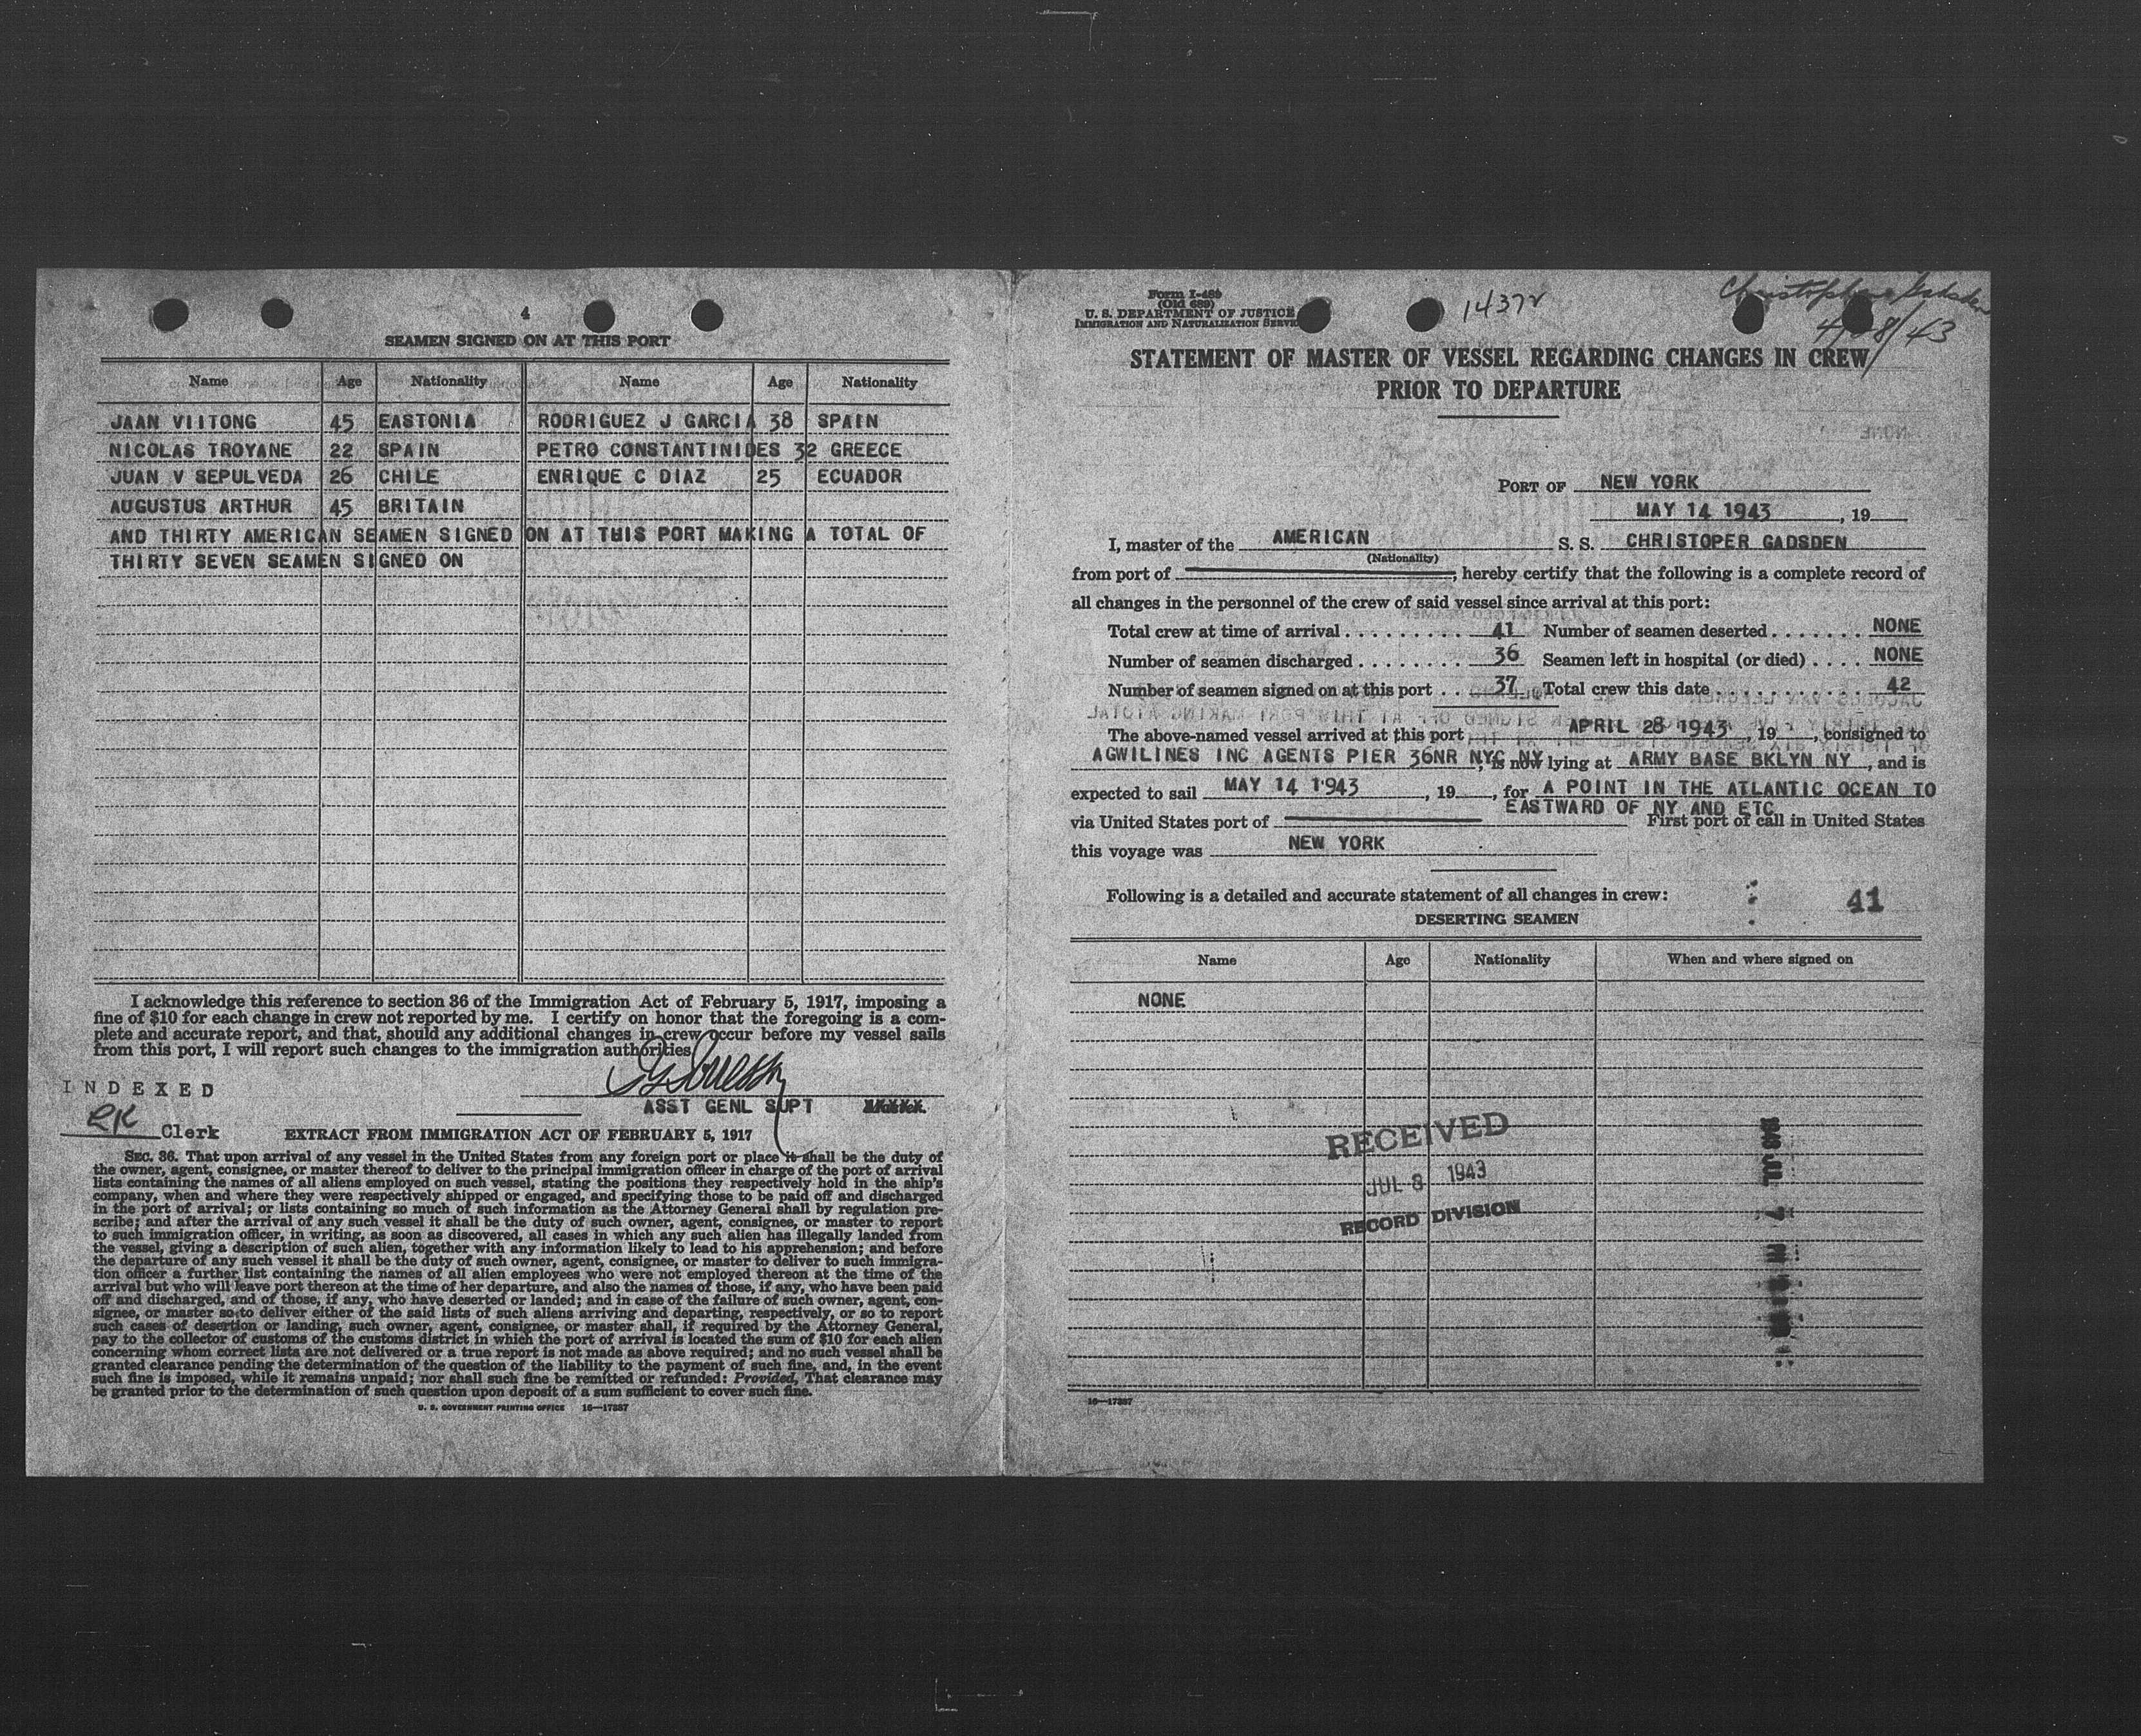 4
SEAMEN SIGNED ON AT THIS PORT
Name Age Nationality Name Age Nationality
JAAN VIITONG 45 EASTONIA RODRIGUEZ J GARCIA 38 SPAIN
NICOLAS TROYANE 22 SPAIN PETRO CONSTANTINIDES 32 GREECE
JUAN V SEPULVEDA 26 CHILE ENRIQUE C DIAZ 25 ECUADOR
AUGUSTUS ARTHUR 45 BRITAIN
AND THIRTY AMERICAN SEAMEN SIGNED ON AT THIS PORT MAKING A TOTAL OF
THIRTY SEVEN SEAMEN SIGNED ON
I acknowledge this reference to section 36 of the Immigration Act of February 5, 1917, imposing a
fine of $10 for each change in crew not reported by me. I certify on honor that the foregoing is a com-
plete and accurate report, and that, should any additional changes in crew occur before my vessel sails
from this port, I will report such changes to the immigration authorities
INDEXED
ASST GENL SUPT Master.
RK Clerk
EXTRACT FROM IMMIGRATION ACT OF FEBRUARY 5, 1917
SEC. 36. That upon arrival of any vessel in the United States from any foreign port or place it shall be the duty of
the owner, agent, consignee, or master thereof to deliver to the principal immigration officer in charge of the port of arrival
lists containing the names of all aliens employed on such vessel, stating the positions they respectively hold in the ship's
company, when and where they were respectively shipped or engaged, and specifying those to be paid off and discharged
in the port of arrival; or lists containing so much of such information as the Attorney General shall by regulation pre-
scribe; and after the arrival of any such vessel it shall be the duty of such owner, agent, consignee, or master to report
to such immigration officer, in writing, as soon as discovered, all cases in which any such alien has illegally landed from
the vessel, giving a description of such alien, together with any information likely to lead to his apprehension; and before
the departure of any such vessel it shall be the duty of such owner, agent, consignee, or master to deliver to such immigra-
tion officer a further list containing the names of all alien employees who were not employed thereon at the time of the
arrival but who will leave port thereon at the time of her departure, and also the names of those, if any, who have been paid
off and discharged, and of those, if any, who have deserted or landed; and in case of the failure of such owner, agent, con-
signee, or master so to deliver either of the said lists of such aliens arriving and departing, respectively, or so to report
such cases of desertion or landing, such owner, agent, consignee, or master shall, if required by the Attorney General,
pay to the collector of customs of the customs district in which the port of arrival is located the sum of $10 for each alien
concerning whom correct lists are not delivered or a true report is not made as above required; and no such vessel shall be
granted clearance pending the determination of the question of the liability to the payment of such fine, and, in the event
such fine is imposed, while it remains unpaid; nor shall such fine be remitted or refunded: Provided, That clearance may
be granted prior to the determination of such question upon deposit of a sum sufficient to cover such fine.
U. S. GOVERNMENT PRINTING OFFICE 16—17387
Form I-489
(Old 689)
U. S. DEPARTMENT OF JUSTICE
IMMIGRATION AND NATURALIZATION SERVICE
1437
Christopher Gadsden
4/28/43
STATEMENT OF MASTER OF VESSEL REGARDING CHANGES IN CREW
PRIOR TO DEPARTURE
PORT OF NEW YORK
MAY 14 1943, 19
I, master of the AMERICAN S. S. CHRISTOPER GADSDEN
(Nationality)
from port of , hereby certify that the following is a complete record of
all changes in the personnel of the crew of said vessel since arrival at this port:
Total crew at time of arrival . . . . . . . . . . 41 Number of seamen deserted . . . . . . . NONE
Number of seamen discharged . . . . . . . . 36 Seamen left in hospital (or died) . . . . NONE
Number of seamen signed on at this port . . 37 Total crew this date . . . . . . . . . . . 42
The above-named vessel arrived at this port APRIL 28 1943, 19 , consigned to
AGWILINES INC AGENTS PIER 36NR NYC NY, is now lying at ARMY BASE BKLYN NY, and is
expected to sail MAY 14 1943, 19 , for A POINT IN THE ATLANTIC OCEAN TO
EASTWARD OF NY AND ETC
via United States port of First port of call in United States
this voyage was NEW YORK
Following is a detailed and accurate statement of all changes in crew: 41
DESERTING SEAMEN
Name Age Nationality When and where signed on
NONE
RECEIVED
JUL 8 1943
RECORD DIVISION
16—17387